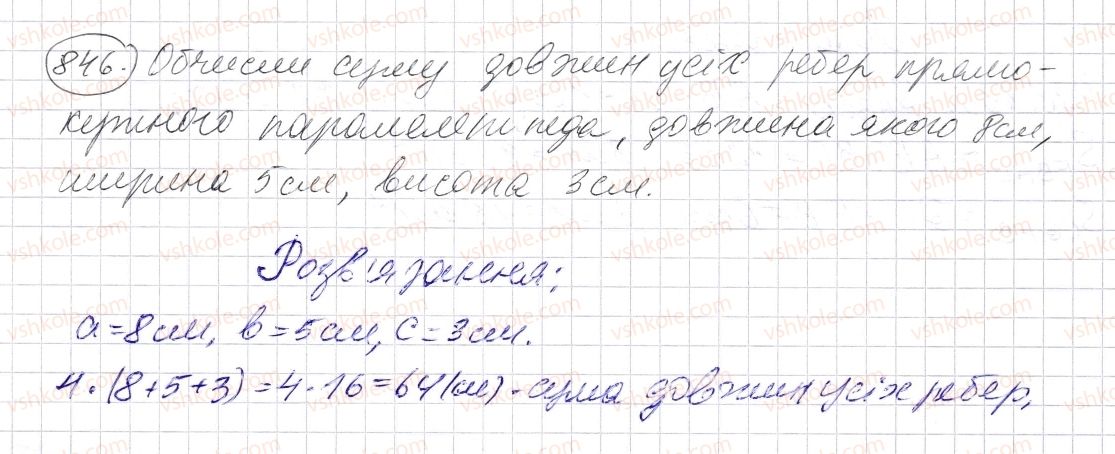 846.) Обчисли суму довжин усіх ребер прямо-
кутного паралелепіпеда, довжина якого 8см,
ширина 5см, висота 3см.
Розв'язання:
a=8см, в=5см, c=3см.
4·(8+5+3)=4·16=64(см)-сума довжин усіх ребер,